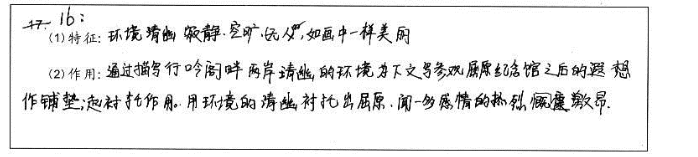 17. 16：
(1) 特征：环境清幽 寂静．空旷．无人，如画中一样美丽
(2) 作用：通过描写行吟阁畔两岸清幽的环境为下文写参观屈原纪念馆之后的遐想
作铺垫；起衬托作用．用环境的清幽衬托出屈原．闻一多感情的热烈 慷慨激昂．